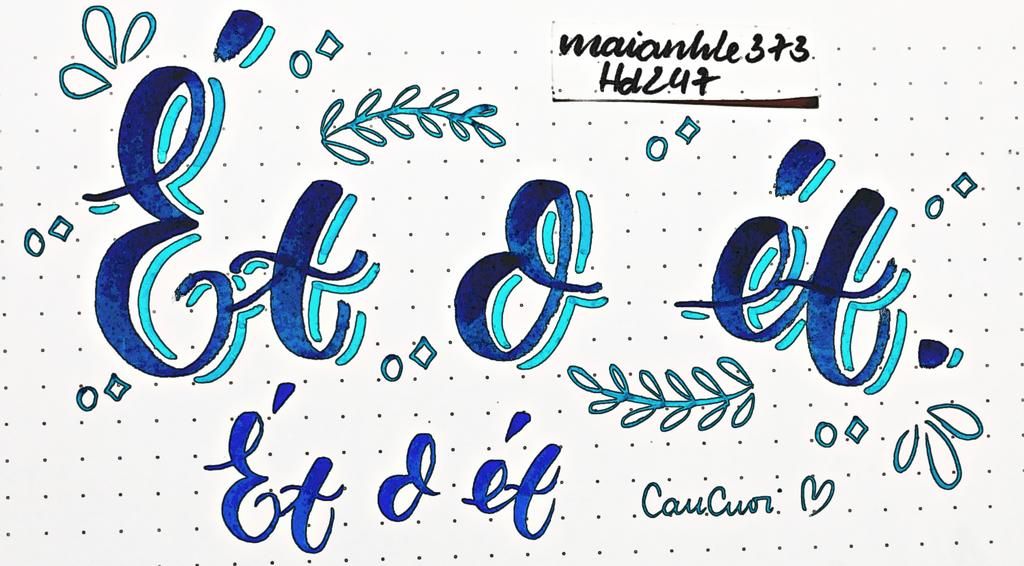 maianhle373
Hd247
Ét ơ ét.
Ét ơ ét
CauCuoi